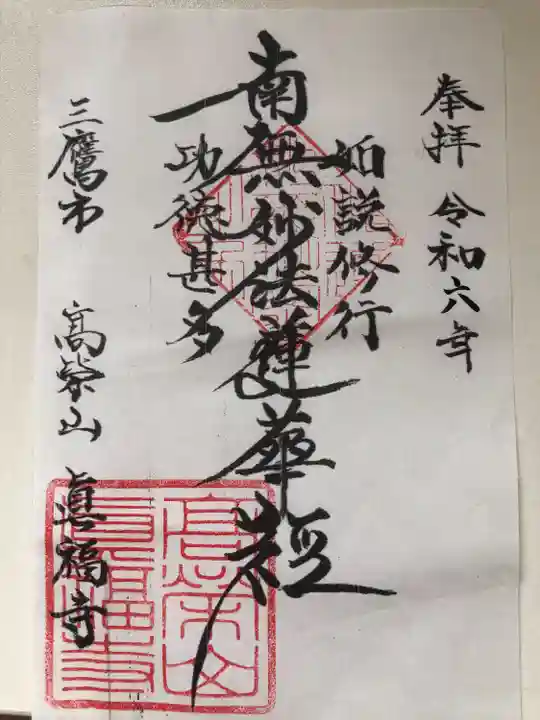 奉拝 令和六年
如説修行
南無妙法蓮華経
功徳甚多
三鷹市 高榮山 眞福寺